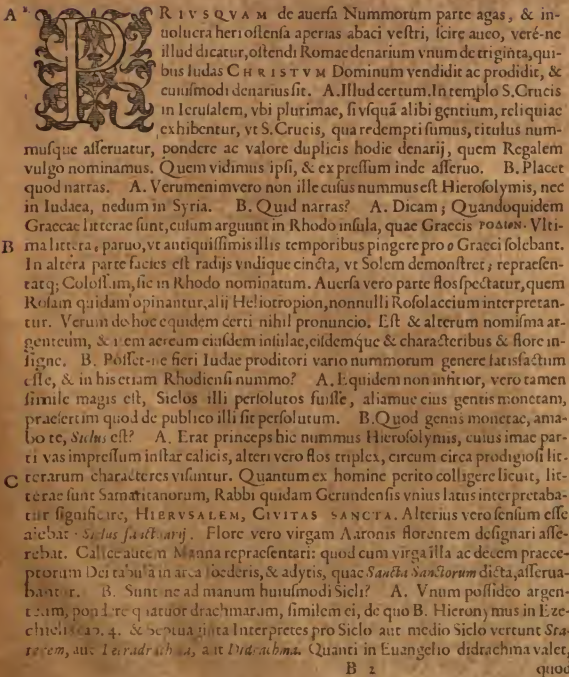 A PRIVSQVAM de auersa Nummorum parte agas, & in-
uolucra heri ostensa aperias abaci vestri, scire aueo, veré-ne
illud dicatur, ostendi Romae denarium vnum de triginta, qui-
bus Iudas CHRISTVM Dominum vendidit ac prodidit, &
cuiusmodi denarius sit. A. Illud certum. In templo S. Crucis
in Ierusalem, vbi plurimae, si vsquā alibi gentium, reliquiae
exhibentur, vt S. Crucis, qua redempti sumus, titulus num-
musque asseruatur, pondere ac valore duplicis hodie denarij, quem Regalem
vulgo nominamus. Quem vidimus ipsi, & expressum inde assero. B. Placet
quod narras. A. Verumenimvero non ille cusus nummus est Hierosolymis, nec
in Iudaea, nedum in Syria. B. Quid narras? A. Dicam; Quandoquidem
Graecae litterae sunt, culum arguunt in Rhodo insula, quae Graecis ΡΟΔΙΟΝ. Vlti-
B ma littera, paruo, vt antiquissimis illis temporibus pingere pro o Graeci solebant.
In altera parte facies est radijs vndique cincta, vt Solem demonstret; repraesen-
tatq; Colossum, sic in Rhodo nominatum. Auersa vero parte flos spectatur, quem
Rosam quidam opinantur, alij Heliotropion, nonnulli Rosolaccium interpretan-
tur. Verum de hoc equidem certi nihil pronuncio. Est & alterum nomisma ar-
genteum, & item aereum eiusdem insulae, eisdemque & characteribus & flore in-
signe. B. Posset-ne fieri Iudae proditori vario nummorum genere satisfactum
esse, & in his etiam Rhodiensi nummo? A. Equidem non infitior, vero tamen
simile magis est, Siclos illi persolutos fuisse, aliamue eius gentis monetam,
praesertim quod de publico illi sit persolutum. B. Quod genus monetae, ama-
bo te, Siclus est? A. Erat princeps hic nummus Hierosolymis, cuius imae par-
ti vas impressum instar calicis, alteri vero flos triplex, circum circa prodigiosi lit-
C terarum characteres visuntur. Quantum ex homine perito colligere licuit, lit-
terae sunt Samaritanorum, Rabbi quidam Gerundensis vnius latus interpretaba-
tur significare, HIERVSALEM, CIVITAS SANCTA. Alterius vero sensum esse
aiebat Siclus sanctuarij. Flore vero virgam Aaronis florentem designari asse-
rebat. Calice autem Manna repraesentari: quod cum virga illa ac decem praece-
ptorum Dei tabula in arca foederis, & adytis, quae Sancta Sanctorum dicta, asserua-
bantur. B. Sunt ne ad manum huiusmodi Sicli? A. Vnum possideo argen-
teum, pondere quatuor drachmarum, similem ei, de quo B. Hieronymus in Eze-
chielis cap. 4. & Septuaginta Interpretes pro Siclo aut medio Siclo vertunt Sta-
terem, aut Tetradrachma, aut Didrachma. Quanti in Euangelio didrachma valet,
B 2 quod